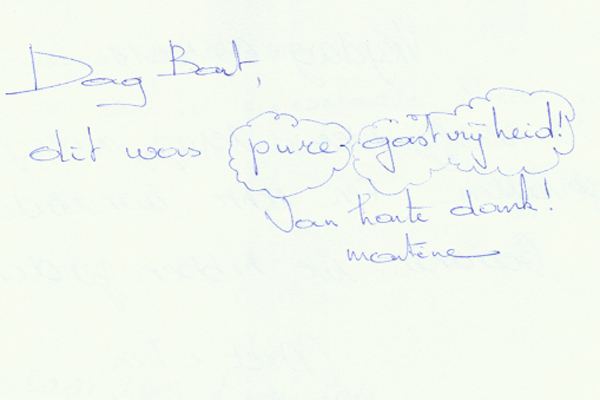 Dag Bart,
dit was pure gastvrijheid!
Van harte dank!
martine